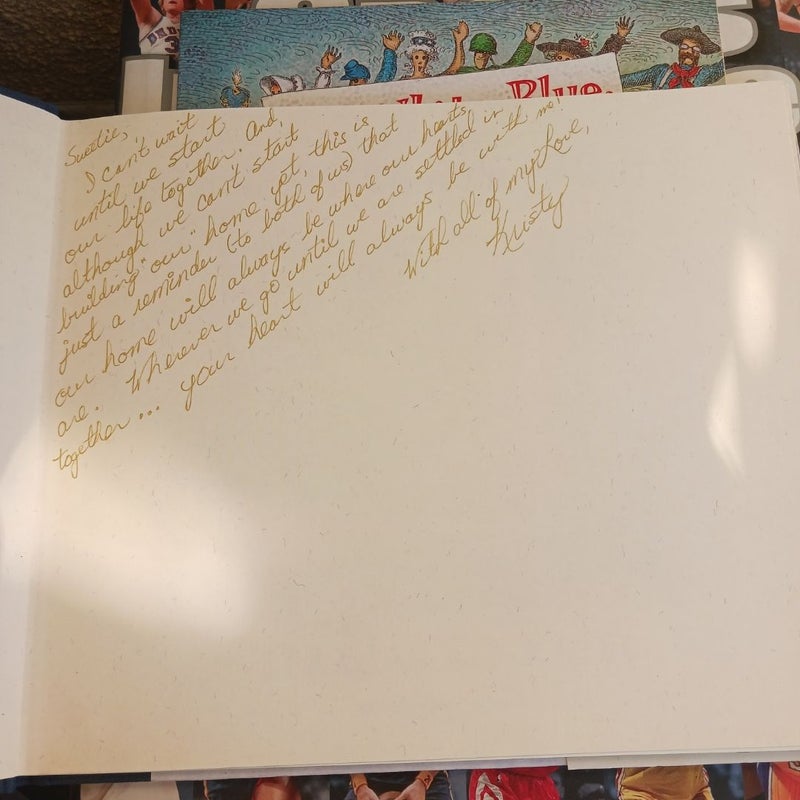 Blue,
Sweetie,
I can't wait
until we start
our life together. And,
although we can't start
building "our" home yet, this is
just a reminder (to both of us) that
our home will always be where our hearts
are. Wherever we go until we are settled in
together... your heart will always be with me!
With all of my Love,
Kristy